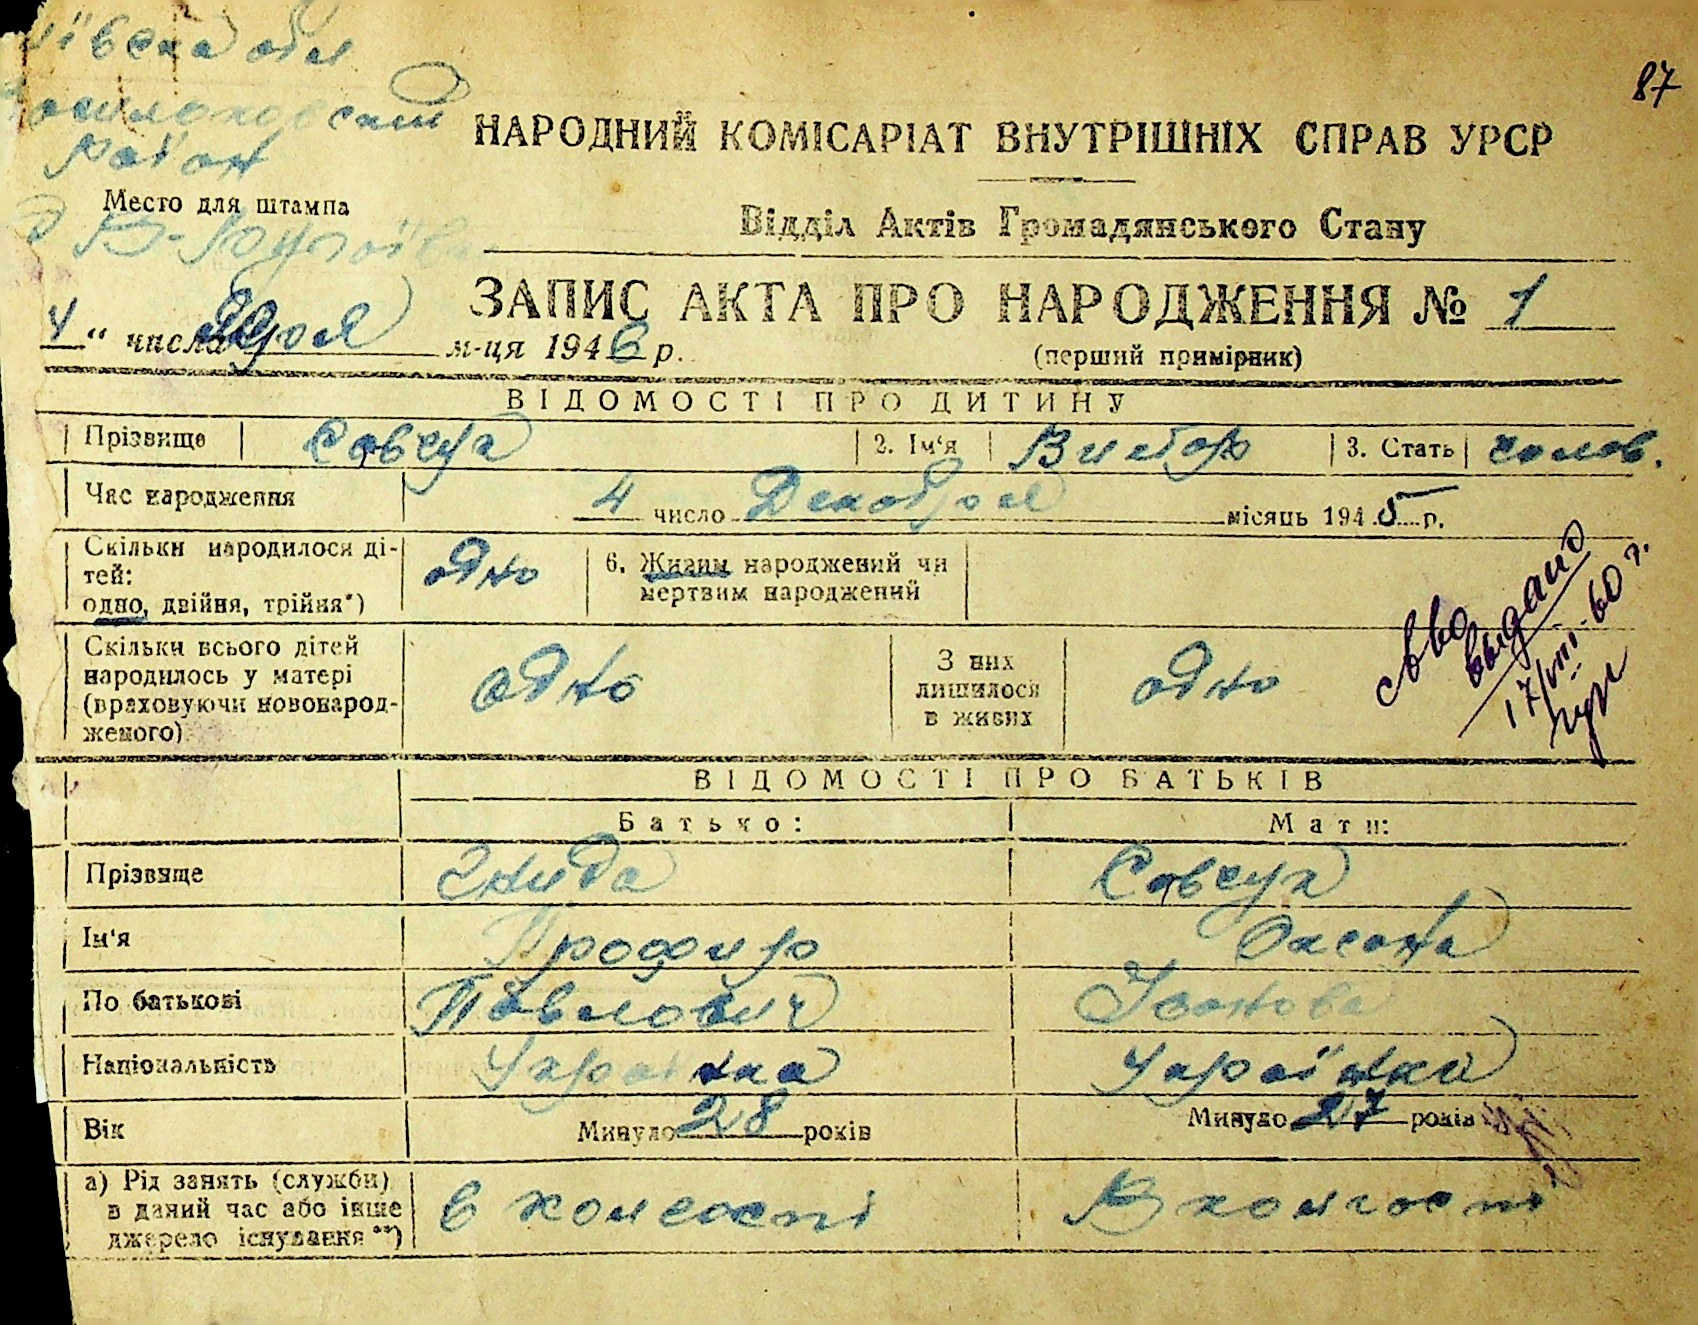 87
ївська обл
район
НАРОДНИЙ КОМІСАРІАТ ВНУТРІШНІХ СПРАВ УРСР
Место для штампа
Відділ Актів Громадянського Стану
ЗАПИС АКТА ПРО НАРОДЖЕННЯ № 1
4 " числа м-ця 1946 р.
(перший примірник)
ВІДОМОСТІ ПРО ДИТИНУ
Прізвище Совсун 2. Ім'я Виктор 3. Стать чолов.
Час народження 4 число Декабря місяць 1945 р.
Скільки народилося дітей: одно, двійня, трійня*) одно 6. Живим народжений чи мертвим народжений
Скільки всього дітей народилось у матері (враховуючи новонародженого) одно З них лишилося в живих одно
выдано
17/VIII-60 г.
ВІДОМОСТІ ПРО БАТЬКІВ
Батько: Мати:
Прізвище Гнида Совсун
Ім'я Профир Оксана
По батькові Павлович Іванова
Національність Українка Українка
Вік Минуло 28 років Минуло 27 років
а) Рід занять (служби)
в даний час або інше
джерело існування**)
в колгоспі В колгоспі